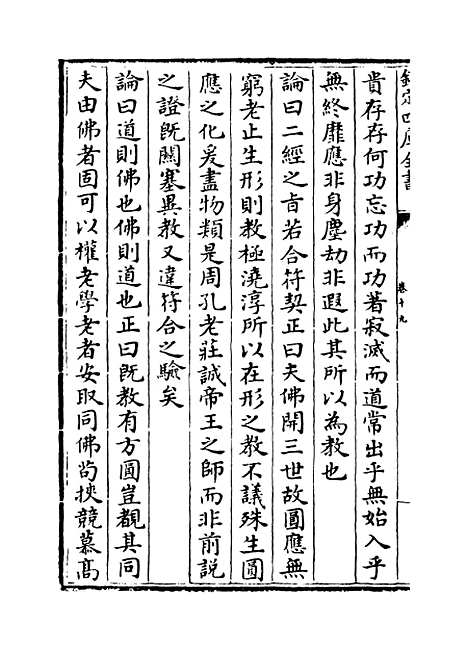 欽定四庫全書
卷十九
貴存存何功忘功而功著寂滅而道常出乎無始入乎
無終靡應非身塵劫非遐此其所以為教也
論曰二經之㫖若合符契正曰夫佛開三世故圓應無
窮老止生形則教極澆淳所以在形之教不議殊生圓
應之化爰盡物類是周孔老莊誠帝王之師而非前說
之證旣闗塞異教又違符合之驗矣
論曰道則佛也佛則道也正曰旣教有方圓豈覩其同
夫由佛者固可以權老學老者安取同佛苟挾競慕髙